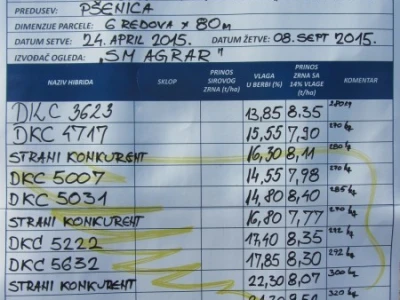 PREDUSEV: PŠENICA
DIMENZIJE PARCELE: 6 REDOVA x 80m
DATUM SETVE: 24. APRIL 2015. DATUM ŽETVE: 08. SEPT 2015.
IZVOĐAČ OGLEDA: "SM AGRAR"
NAZIV HIBRIDA SKLOP PRINOS SIROVOG ZRNA (t/ha) VLAGA U BERBI (%) PRINOS ZRNA SA 14% VLAGE (t/ha) KOMENTAR
DKC 3623 13,85 8,35
DKC 4717 15,55 7,90 270 kg
STRANI KONKURENT 16,30 8,11 280 kg
DKC 5007 14,55 7,98 270 kg
DKC 5031 14,80 8,40 285 kg
STRANI KONKURENT 16,80 7,77 270 kg
DKC 5222 17,40 8,35 292 kg
DKC 5632 17,85 8,30 292 kg
STRANI KONKURENT 22,30 8,07 300 kg
320 kg